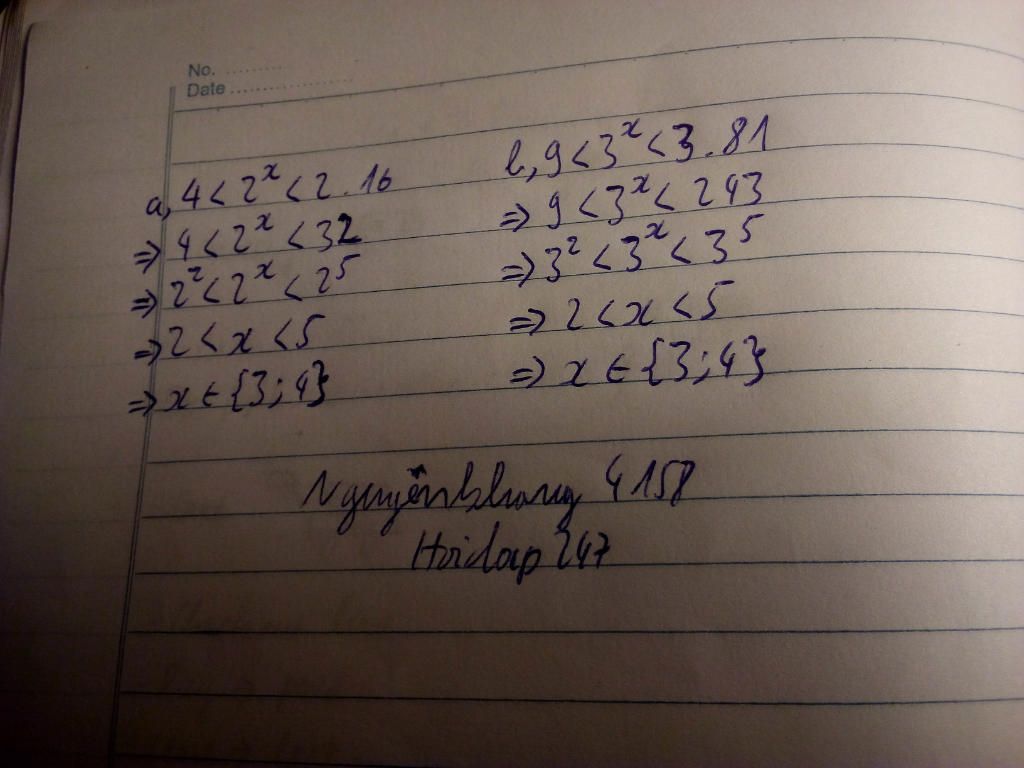 No. ..........
Date ....................
a, 4 < 2^x < 2 . 16
=> 4 < 2^x < 32
=> 2^2 < 2^x < 2^5
=> 2 < x < 5
=> x ∈ {3; 4}
b, 9 < 3^x < 3 . 81
=> 9 < 3^x < 243
=> 3^2 < 3^x < 3^5
=> 2 < x < 5
=> x ∈ {3; 4}
Nguyênkhang 4158
Hoidap 247